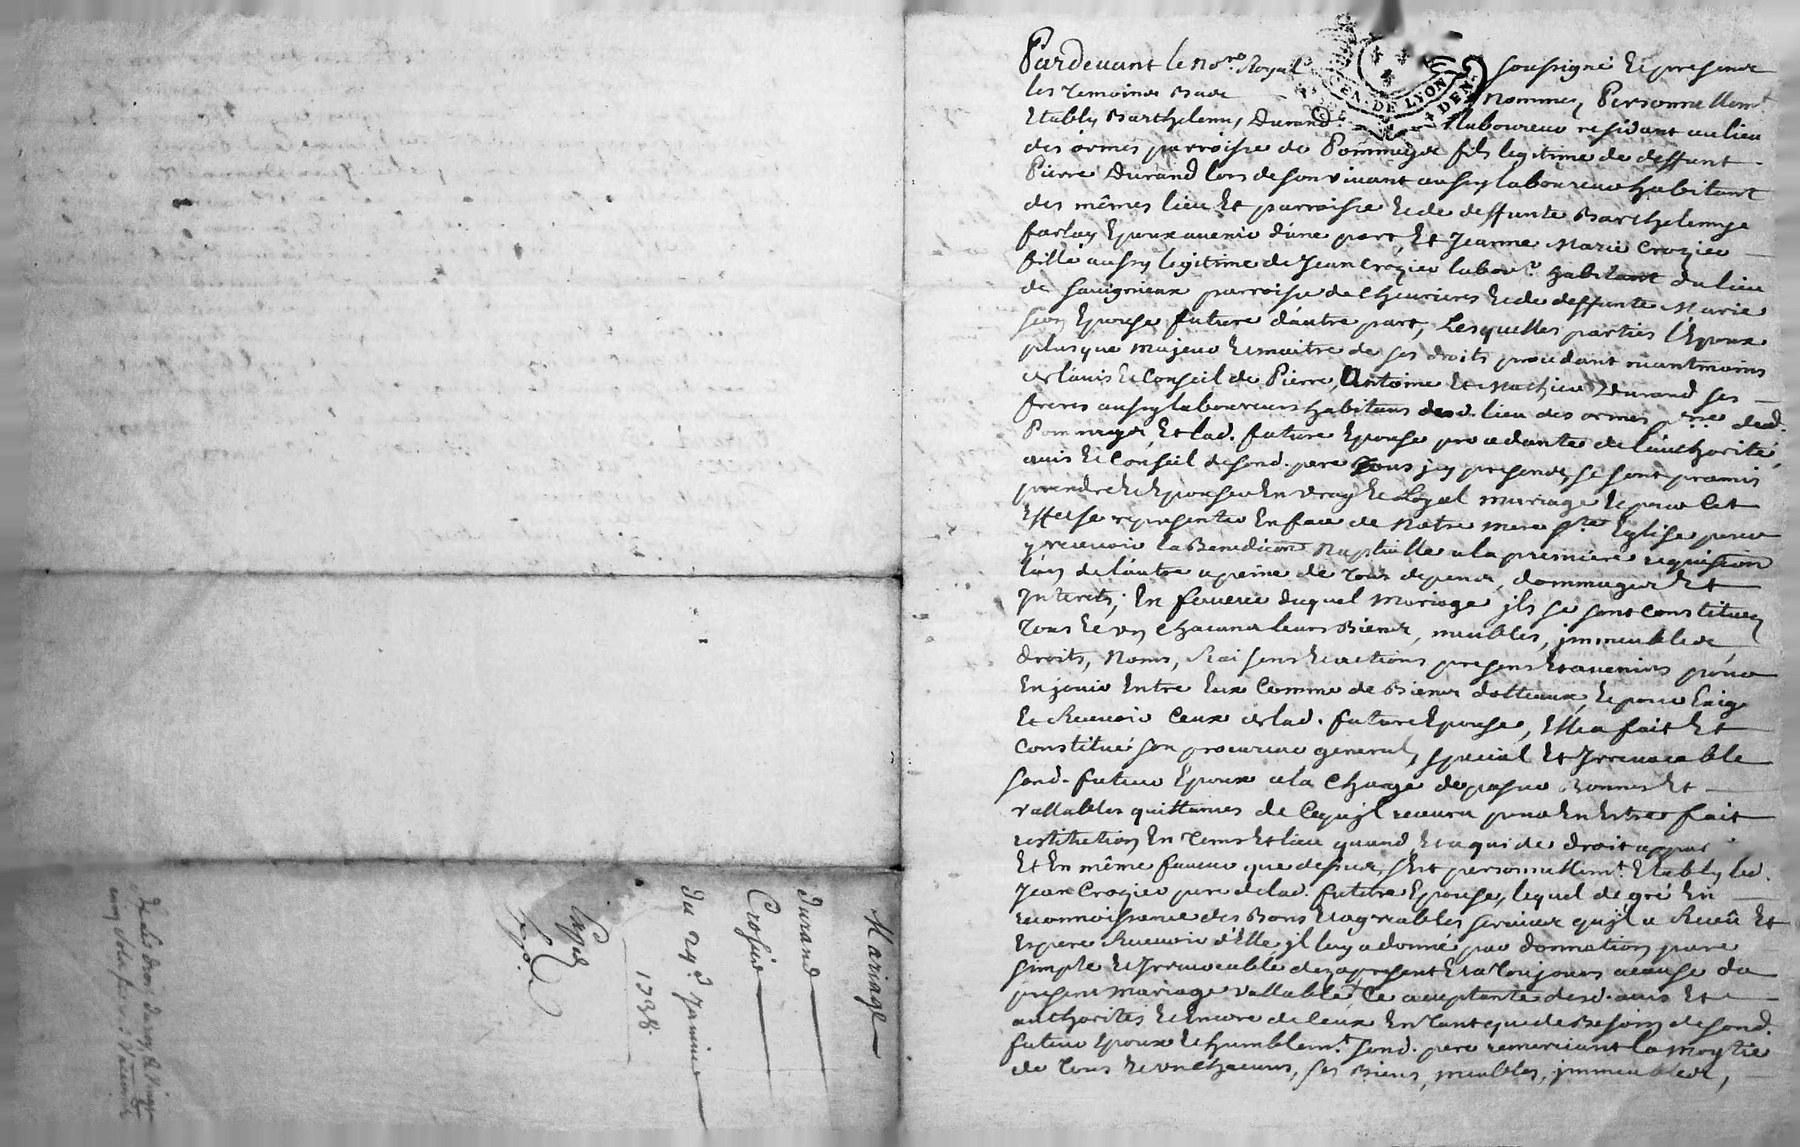 Pardevant le no.re Royal soussigné Et presents
les temoins bas nommes, Personnellem.t
Etably Barthelemy Durand laboureur residant au lieu
des ormes parroisse de Pommeys fils legitime de deffunt
Pierre Durand lors de son vivant aussy laboureur habitant
des mêmes lieu Et parroisse Et de deffunte Barthelemye
farlay Epoux avenir d'une part, Et Jeanne Marie Crozier
fille aussy legitime de Jean Crozier labou.r habitant du lieu
de savignieux parroisse de Chevrieres Et de deffunte Marie
Epouse future d'autre part, Lesquelles parties l'Epoux
plus que majeur Et maitre de ses droits procedant neantmoins
de l'avis Et Conseil de Pierre, Antoine Et Mathieu Durand ses
freres aussy laboureurs habitans dud. lieu des ormes p.sse dud.
Pommeys, Et lad. future Epouse procedante de l'authorité,
avis Et Conseil de sond. pere tous jcy presents, se sont promis
prendre Et Epouser En vray Et Loyal mariage Et pour Cet
Effet se representer En face de Notre mere S.te Eglise pour
y recevoir la Benediction Nuptialle a la premiere requisition
l'un de l'autre a peine de tous depens, dommages Et
Interets; En faveur duquel mariage jls se sont constitués
tous Et un chacuns leurs Biens, meubles, jmmeubles
droits, Noms, Raisons Et actions presens Et avenirs pour
En jouir Entre Eux Comme de Biens dotteaux, Et pour Exiger
Et Recevoir Ceux de lad. future Epouse, Elle a fait Et
constitué son procureur general, special Et Irrevocable
sond. futur Epoux a la Charge de passer Bonnes Et
vallables quittances de Ce qu'jl recevra pour En Estre fait
restitution En tems Et lieu quand Et a qui de droit
Et En même faveur que dessus, s'Est personnellem.t Etably led.
Jean Crozier pere de lad. future Epouse, lequel de gré En
reconnoissance des Bons Et agreables services qu'jl a Receu Et
Espere Recevoir d'Elle jl luy a donné par donnation pure
simple Et Irrevocable dez apresent Et a toujours a cause du
present mariage vallable Ce acceptante desd. avis Et
authorités Et Encore de Ceux En tant que de Besoin de sond.
futur Epoux Et humblem.t sond. pere remerciant la moytié
de tous Et un chacuns, ses Biens, meubles, jmmeubles,
GEN. DE LYON
DEN.
Mariage
Durand
Crosier
Du 24.e Janvier
1738